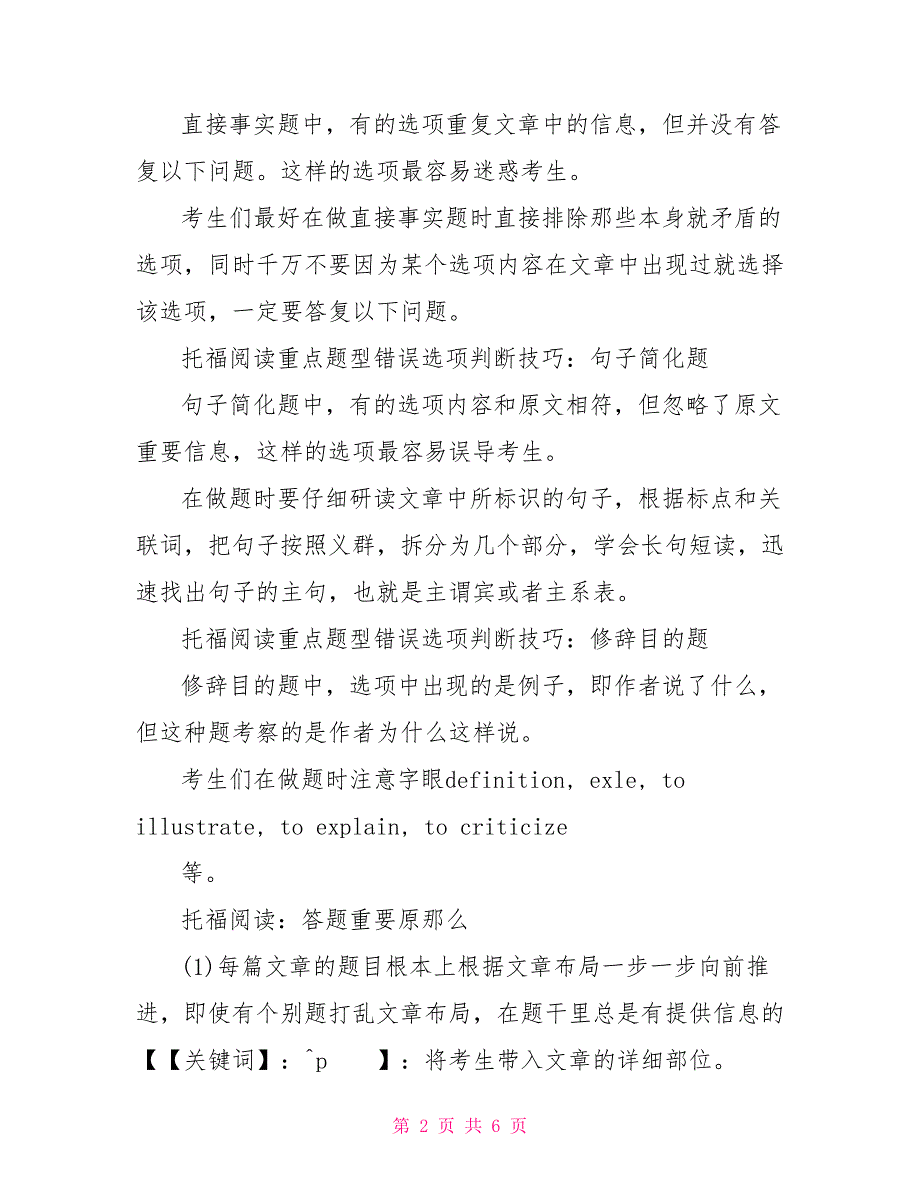 直接事实题中，有的选项重复文章中的信息，但并没有答
复以下问题。这样的选项最容易迷惑考生。
考生们最好在做直接事实题时直接排除那些本身就矛盾的
选项，同时千万不要因为某个选项内容在文章中出现过就选择
该选项，一定要答复以下问题。
托福阅读重点题型错误选项判断技巧：句子简化题
句子简化题中，有的选项内容和原文相符，但忽略了原文
重要信息，这样的选项最容易误导考生。
在做题时要仔细研读文章中所标识的句子，根据标点和关
联词，把句子按照义群，拆分为几个部分，学会长句短读，迅
速找出句子的主句，也就是主谓宾或者主系表。
托福阅读重点题型错误选项判断技巧：修辞目的题
修辞目的题中，选项中出现的是例子，即作者说了什么，
但这种题考察的是作者为什么这样说。
考生们在做题时注意字眼definition, exle, to
illustrate, to explain, to criticize
等。
托福阅读：答题重要原那么
(1)每篇文章的题目根本上根据文章布局一步一步向前推
进，即使有个别题打乱文章布局，在题干里总是有提供信息的
【【关键词】：^p 】：将考生带入文章的详细部位。
第 2 页 共 6 页